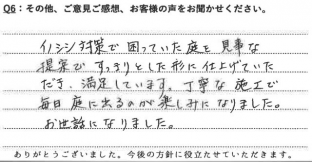 Q6：その他、ご意見ご感想、お客様の声をお聞かせください。
イノシシ対策で困っていた庭を見事な
提案ですっきりとした形に仕上げていた
だき、満足しています。丁寧な施工で
毎日庭に出るのが楽しみになりました。
お世話になりました。
ありがとうございました。今後の方針に役立たせていただきます。